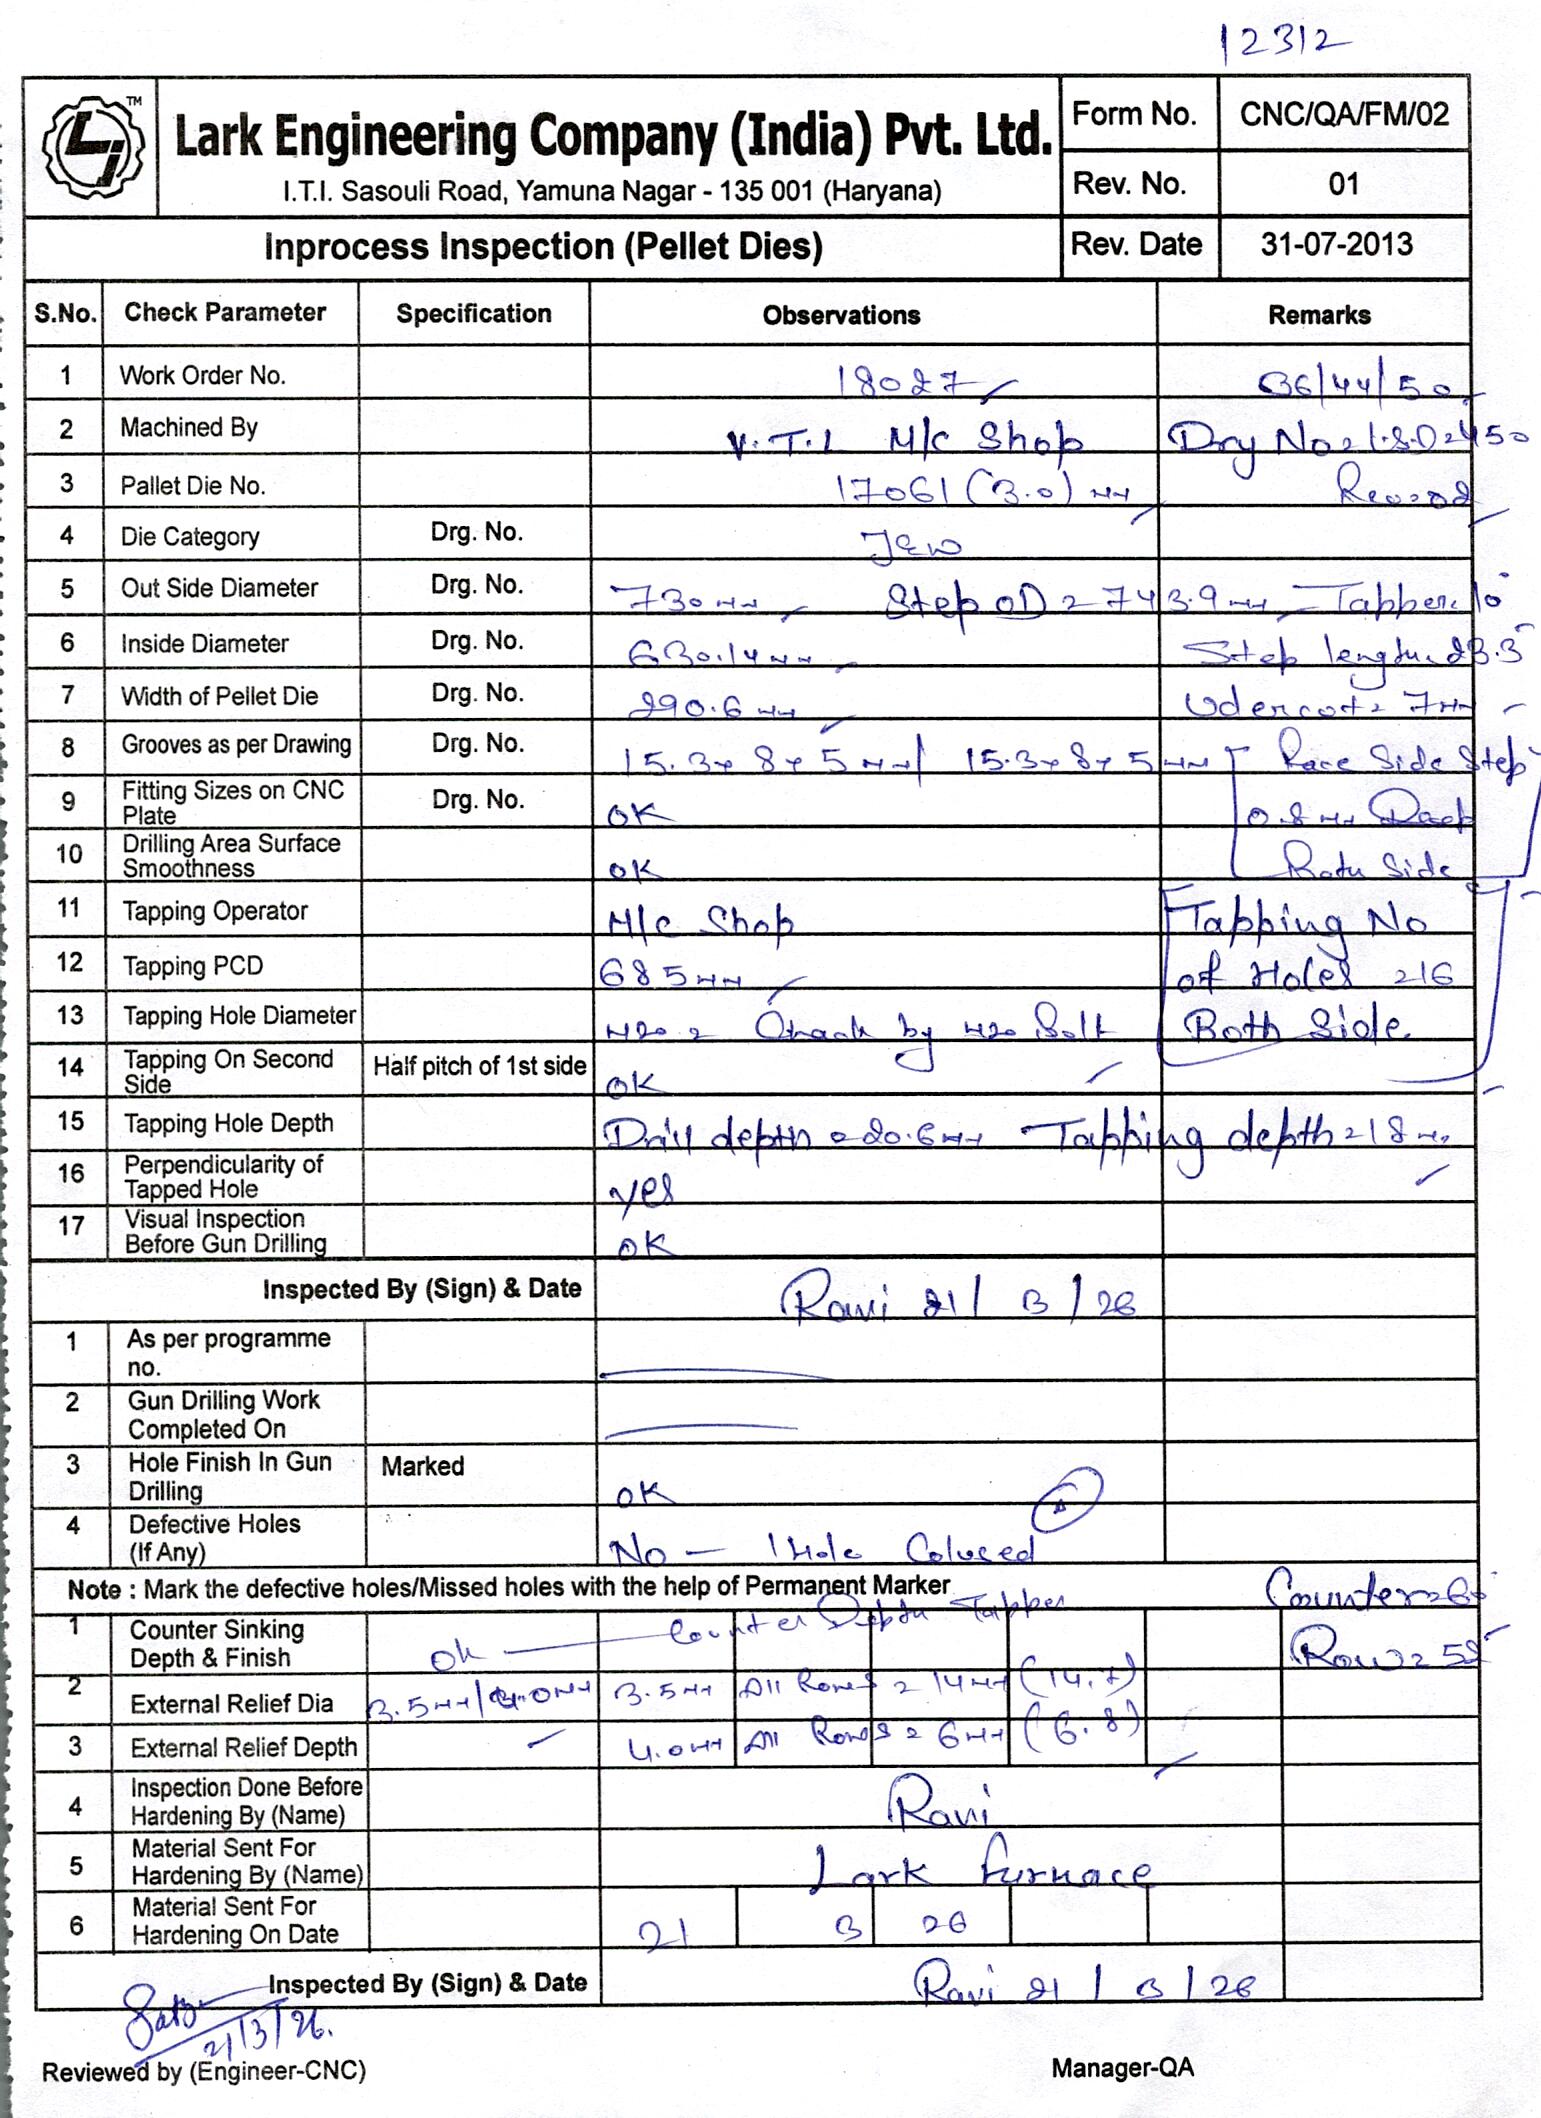 12312
TM
Lark Engineering Company (India) Pvt. Ltd.
I.T.I. Sasouli Road, Yamuna Nagar - 135 001 (Haryana)
Form No. CNC/QA/FM/02
Rev. No. 01
Inprocess Inspection (Pellet Dies) Rev. Date 31-07-2013
S.No. Check Parameter Specification Observations Remarks
1 Work Order No. 18027 36/44/50
2 Machined By V.T.L M/c Shop Drg No = L.S.D = 450
3 Pallet Die No. 17061 (3.0) mm
4 Die Category Drg. No. JEW
5 Out Side Diameter Drg. No. 730 mm Step OD = 743.9 mm Tapper = 10°
6 Inside Diameter Drg. No. 630.14 mm Step length = 23.5
7 Width of Pellet Die Drg. No. 290.6 mm Udercot = 7 mm
8 Grooves as per Drawing Drg. No. 15.3 x 8 x 5 mm / 15.3 x 8 x 5 mm Race Side Step
9 Fitting Sizes on CNC Plate Drg. No. OK 0.8 mm Deep
10 Drilling Area Surface Smoothness OK Both Side
11 Tapping Operator M/c Shop Tapping No
12 Tapping PCD 685 mm of Holes = 16
13 Tapping Hole Diameter M20 = Chack by M20 Bolt Both Side
14 Tapping On Second Side Half pitch of 1st side OK
15 Tapping Hole Depth Drill depth = 20.6 mm Tapping depth = 18 mm
16 Perpendicularity of Tapped Hole yes
17 Visual Inspection Before Gun Drilling OK
Inspected By (Sign) & Date Ravi 21/3/26
1 As per programme no.
2 Gun Drilling Work Completed On
3 Hole Finish In Gun Drilling Marked OK
4 Defective Holes (If Any) No - 1 Hole Colused
Note : Mark the defective holes/Missed holes with the help of Permanent Marker Counter = 60°
1 Counter Sinking Depth & Finish Ok Counter Depth Tapper Row = 58
2 External Relief Dia 3.5 mm/4.0 mm 3.5 mm All Rows = 14 mm (14.7)
3 External Relief Depth 4.0 mm All Rows = 6 mm (6.8)
4 Inspection Done Before Hardening By (Name) Ravi
5 Material Sent For Hardening By (Name) Lark furnace
6 Material Sent For Hardening On Date 21 3 26
Inspected By (Sign) & Date Ravi 21/3/26
21/3/26.
Reviewed by (Engineer-CNC) Manager-QA